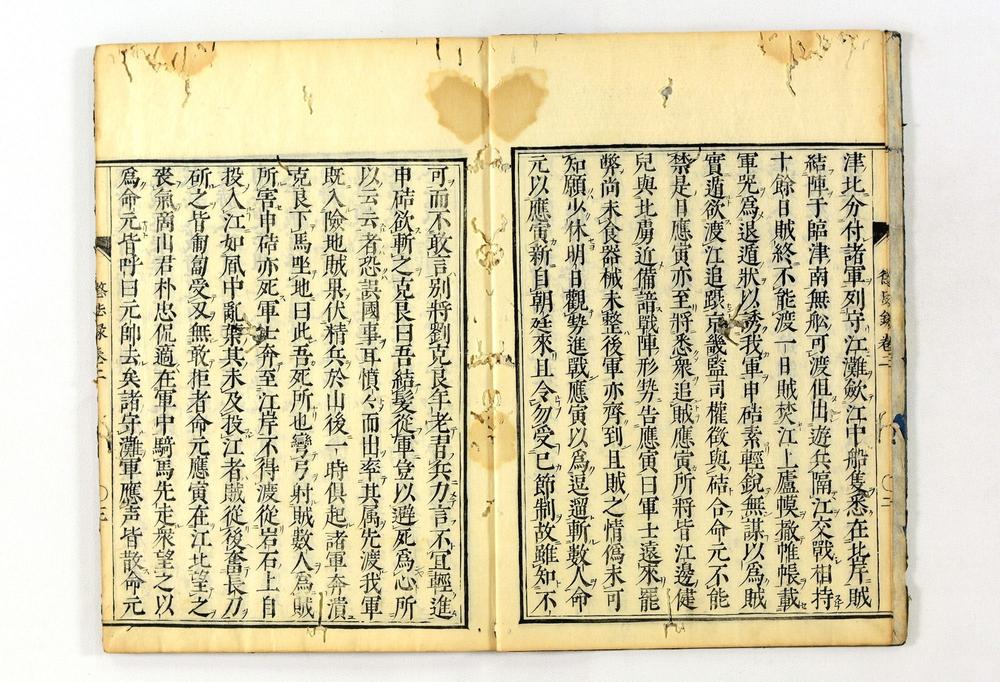 津北分付諸軍列守江灘斂江中船隻悉在北岸賊
結陣于臨津南無船可渡但出遊兵隔江交戰相持
十餘日賊終不能渡一日賊焚江上廬幕撤帷帳載
軍器爲退遁狀以誘我軍申硈素輕銳無謀以爲賊
實遁欲渡江追躡京畿監司權徵與硈合命元不能
禁是日應寅亦至將悉衆追賊應寅所將皆江邊健
兒與北虜近備諳戰陣形勢告應寅曰軍士遠來罷
弊尚未食器械未整後軍亦未齊到且賊之情僞未可
知願少休明日觀勢進戰應寅以爲逗遛斬數人命
元以應寅新自朝廷來且令勿受己節制故雖知不
可而不敢言別將劉克良年老習兵力言不宜輕進
申硈欲斬之克良曰吾結髮從軍豈以避死爲心所
以云云者恐誤國事耳憤々而出率其属先渡我軍
既入險地賊果伏精兵於山後一時俱起諸軍奔潰
克良下馬坐地曰此吾死所也彎弓射賊數人爲賊
所害申硈亦死軍士奔至江岸不得渡從岩石上自
投入江如風中亂葉其未及投江者賊從後奮長刀
斫之皆匍匐受刃無敢拒者命元應寅在江北望之
喪氣商山君朴忠侃適在軍中騎馬先走衆望之以
爲命元皆呼曰元帥去矣諸守灘軍應声皆散命元
懲毖録 卷二
〇二
懲毖録 卷二
〇三